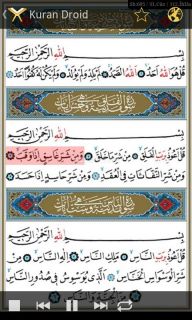 Kuran Droid
بِسْمِ اللهِ الرَّحْمٰنِ الرَّحِيمِ
قُلْ هُوَ اللهُ اَحَدٌ اَللهُ الصَّمَدُ لَمْ يَلِدْ وَلَمْ يُولَدْ وَلَمْ يَكُنْ لَهُ كُفُوًا اَحَدٌ
بِسْمِ اللهِ الرَّحْمٰنِ الرَّحِيمِ
قُلْ اَعُوذُ بِرَبِّ الْفَلَقِ مِنْ شَرِّ مَا خَلَقَ وَمِنْ شَرِّ غَاسِقٍ اِذَا وَقَبَ
وَمِنْ شَرِّ النَّفَّاثَاتِ فِي الْعُقَدِ وَمِنْ شَرِّ حَاسِدٍ اِذَا حَسَدَ
بِسْمِ اللهِ الرَّحْمٰنِ الرَّحِيمِ
قُلْ اَعُوذُ بِرَبِّ النَّاسِ مَلِكِ النَّاسِ اِلٰهِ النَّاسِ مِنْ
شَرِّ الْوَسْوَاسِ الْخَنَّاسِ اَلَّذِي يُوَسْوِسُ فِي صُدُورِ النَّاسِ
مِنَ الْجِنَّةِ وَالنَّاسِ